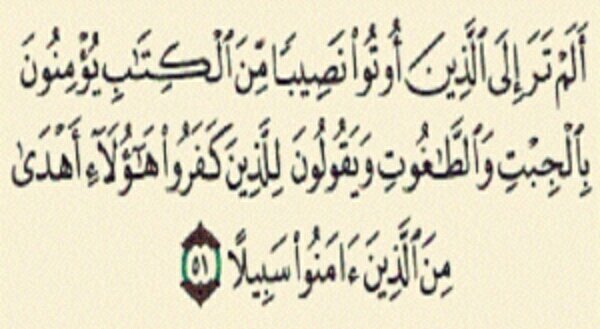 أَلَمْ تَرَ إِلَى ٱلَّذِينَ أُوتُوا۟ نَصِيبًا مِّنَ ٱلْكِتَٰبِ يُؤْمِنُونَ
بِٱلْجِبْتِ وَٱلطَّٰغُوتِ وَيَقُولُونَ لِلَّذِينَ كَفَرُوا۟ هَٰٓؤُلَآءِ أَهْدَىٰ
مِنَ ٱلَّذِينَ ءَامَنُوا۟ سَبِيلًا ٥١